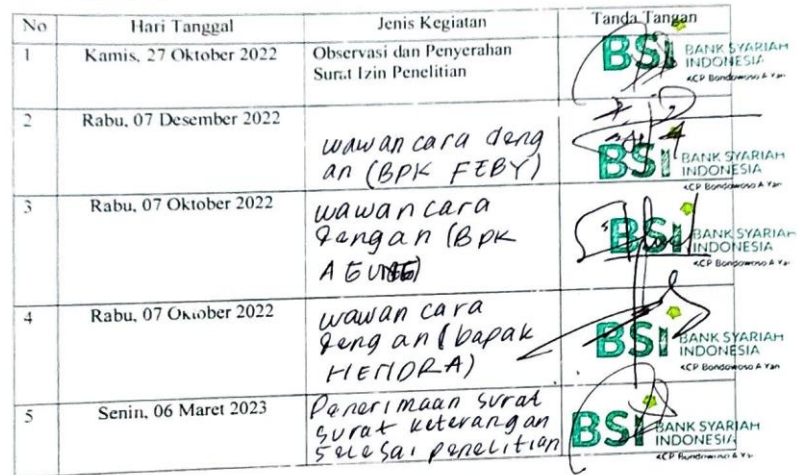 No Hari Tanggal Jenis Kegiatan Tanda Tangan
1 Kamis, 27 Oktober 2022 Observasi dan Penyerahan
Surat Izin Penelitian
BSI BANK SYARIAH
INDONESIA
KCP Bondowoso A Yani
2 Rabu, 07 Desember 2022
wawancara deng
an (BPK FEBY)
BSI BANK SYARIAH
INDONESIA
KCP Bondowoso A Yani
3 Rabu, 07 Oktober 2022 wawancara
dengan (BPK
AGUNG)
BSI BANK SYARIAH
INDONESIA
KCP Bondowoso A Yani
4 Rabu, 07 Oktober 2022 wawancara
dengan (bapak
HENDRA)
BSI BANK SYARIAH
INDONESIA
KCP Bondowoso A Yani
5 Senin, 06 Maret 2023 Penerimaan surat
surat keterangan
selesai penelitian
BSI BANK SYARIAH
INDONESIA
KCP Bondowoso A Yani